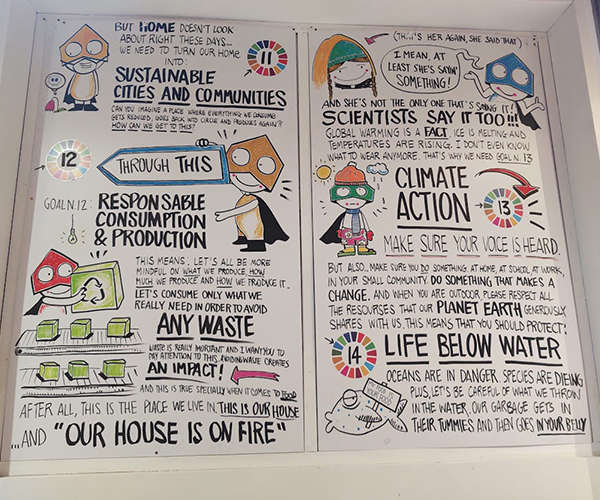 BUT HOME DOESN'T LOOK
ABOUT RIGHT THESE DAYS...
WE NEED TO TURN OUR HOME
INTO:
11
SUSTAINABLE
CITIES AND COMMUNITIES
CAN YOU IMAGINE A PLACE WHERE EVERYTHING WE CONSUME
GETS REDUCED, GOES BACK INTO CIRCLE AND PRODUCES AGAIN?!
HOW CAN WE GET TO THIS?
12
THROUGH THIS
GOAL N.12: RESPONSABLE
CONSUMPTION
& PRODUCTION
THIS MEANS: LET'S ALL BE MORE
MINDFUL ON WHAT WE PRODUCE, HOW
MUCH WE PRODUCE AND HOW WE PRODUCE IT..
LET'S CONSUME ONLY WHAT WE
REALLY NEED IN ORDER TO AVOID
ANY WASTE
WASTE IS REALLY IMORTANT AND I WANT YOU TO
PAY ATTENTION TO THIS. AVOIDING WASTE CREATES
AN IMPACT!
AND THIS IS TRUE SPECIALLY WHEN IT COMES TO FOOD
AFTER ALL, THIS IS THE PLACE WE LIVE IN. THIS IS OUR HOUSE
...AND "OUR HOUSE IS ON FIRE"
(THAT'S HER AGAIN, SHE SAID THAT)
I MEAN, AT
LEAST SHE'S SAYIN'
SOMETHING!
AND SHE'S NOT THE ONLY ONE THAT'S SAYING IT!
SCIENTISTS SAY IT TOO!!!
GLOBAL WARMING IS A FACT. ICE IS MELTING AND
TEMPERATURES ARE RISING. I DON'T EVEN KNOW
WHAT TO WEAR ANYMORE. THAT'S WHY WE NEED GOAL N. 13
CLIMATE
ACTION
13
MAKE SURE YOUR VOICE IS HEARD
BUT ALSO... MAKE SURE YOU DO SOMETHING. AT HOME, AT SCHOOL, AT WORK,
IN YOUR SMALL COMMUNITY. DO SOMETHING THAT MAKES A
CHANGE. AND WHEN YOU ARE OUTDOOR, PLEASE RESPECT ALL
THE RESOURSES THAT OUR PLANET EARTH GENEROUSLY
SHARES WITH US. THIS MEANS THAT YOU SHOULD PROTECT:
14
LIFE BELOW WATER
OCEANS ARE IN DANGER. SPECIES ARE DIEING
PLUS, LET'S BE CAREFUL OF WHAT WE THROW
IN THE WATER, OUR GARBAGE GETS IN
THEIR TUMMIES AND THEN GOES IN YOUR BELLY